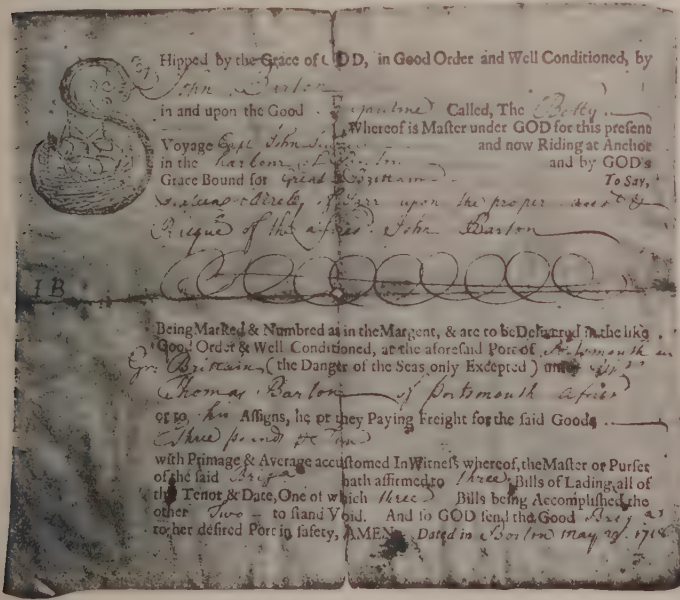 SHipped by the Grace of GOD, in Good Order and Well Conditioned, by
John Barton
in and upon the Good Called, The Betty
Whereof is Master under GOD for this present
Voyage Capt John and now Riding at Anchor
in the harbour of and by GOD's
Grace Bound for Great Brittain To Say,
upon the proper &
Risque of the John Barton
I B
Being Marked & Numbred as in the Margent, & are to be Delivered in the like
Good Order & Well Conditioned, at the aforesaid Port of Portsmouth in
Gr: Brittain (the Danger of the Seas only Excepted) unto
Thomas Barton of Portsmouth
or to his Assigns, he or they Paying Freight for the said Goods
Three pounds
with Primage & Average accustomed In Witness whereof, the Master or Purser
of the said hath affirmed to three Bills of Lading, all of
this Tenor & Date, One of which three Bills being Accomplished, the
other Two to stand Void. And so GOD send the Good
to her desired Port in safety, AMEN Dated in Boston May 29. 1718